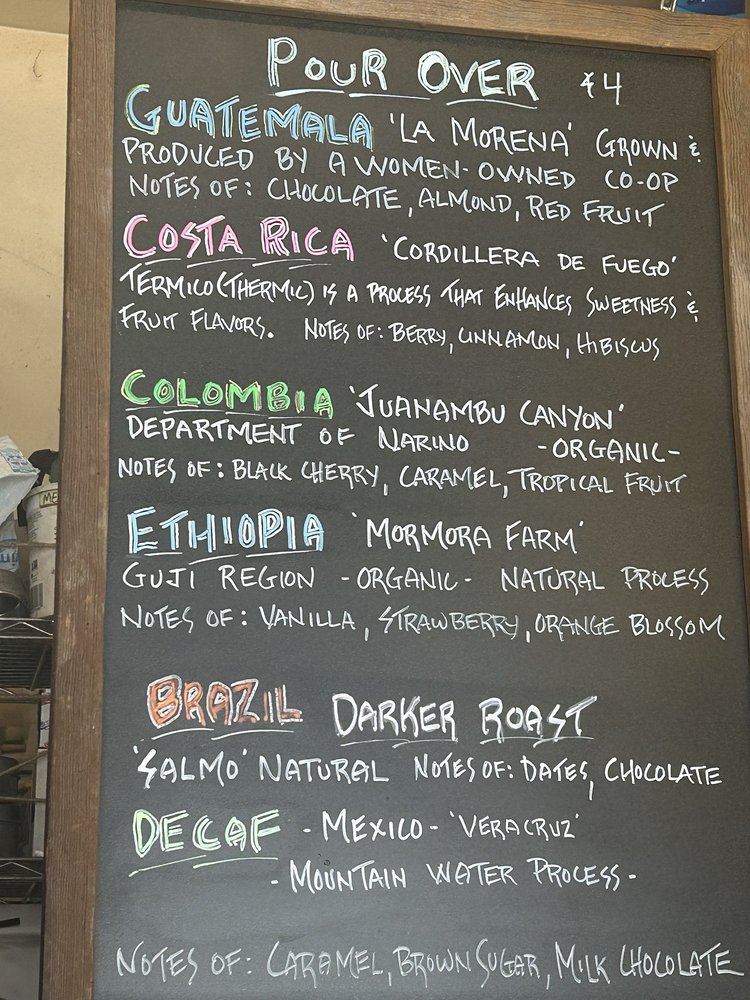 POUR OVER $4
GUATEMALA 'LA MORENA' GROWN &
PRODUCED BY A WOMEN-OWNED CO-OP
NOTES OF: CHOCOLATE, ALMOND, RED FRUIT
COSTA RICA 'CORDILLERA DE FUEGO'
TERMICO (THERMIC) IS A PROCESS THAT ENHANCES SWEETNESS &
FRUIT FLAVORS. NOTES OF: BERRY, CINNAMON, HIBISCUS
COLOMBIA 'JUANAMBU CANYON'
DEPARTMENT OF NARINO -ORGANIC-
NOTES OF: BLACK CHERRY, CARAMEL, TROPICAL FRUIT
ETHIOPIA 'MORMORA FARM'
GUJI REGION -ORGANIC- NATURAL PROCESS
NOTES OF: VANILLA, STRAWBERRY, ORANGE BLOSSOM
BRAZIL DARKER ROAST
'SALMO' NATURAL NOTES OF: DATES, CHOCOLATE
DECAF -MEXICO- 'VERACRUZ'
-MOUNTAIN WATER PROCESS-
NOTES OF: CARAMEL, BROWN SUGAR, MILK CHOCOLATE